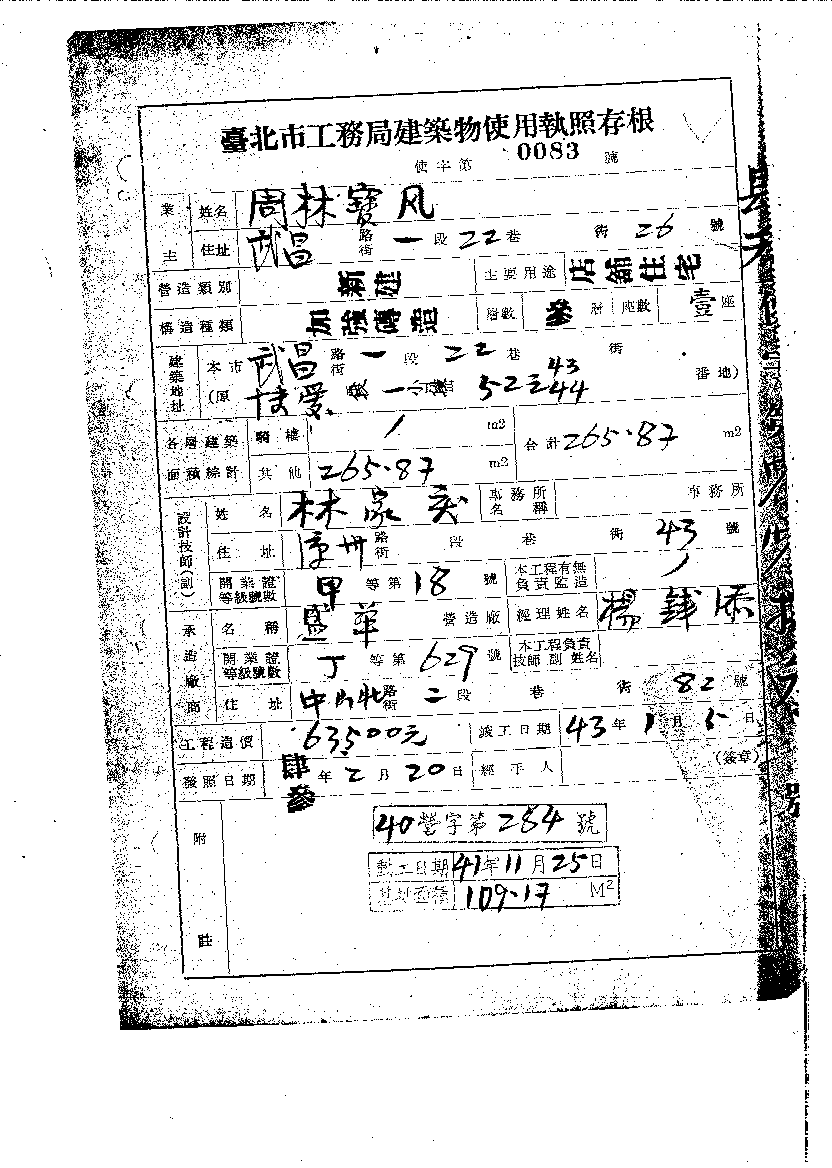 臺北市工務局建築物使用執照存根
使字第 0083 號
業主 姓名 周林寶凡
住址 武昌 路街 一 段 22 巷 街 26 號
營造類別 新建 主要用途 店鋪住宅
構造種類 加強磚造 層數 參 層 座數 壹 座
建築地址 本市 武昌 路街 一 段 22 巷 街
(原 段 一 43 44 番地)
各層建築面積綜計 騎樓 / m2 合計 265.87 m2
其他 265.87 m2
設計技師(副) 姓名 林家 事務所名稱 事務所
住址 路街 段 巷 街 43 號
開業證等級號數 甲 等第 18 號 本工程有無負責監造 /
承造廠商 名稱 盛華 營造廠 經理姓名 楊錢添
開業證等級號數 丁 等第 629 號 本工程負責技師副姓名
住址 中山北 路街 二 段 巷 街 82 號
工程造價 63500元 竣工日期 43 年 1 月 5 日
發照日期 肆參 年 2 月 20 日 經手人 (簽章)
附註
40 營字第 284 號
動工日期 41 年 11 月 25 日
面積 109.17 M2